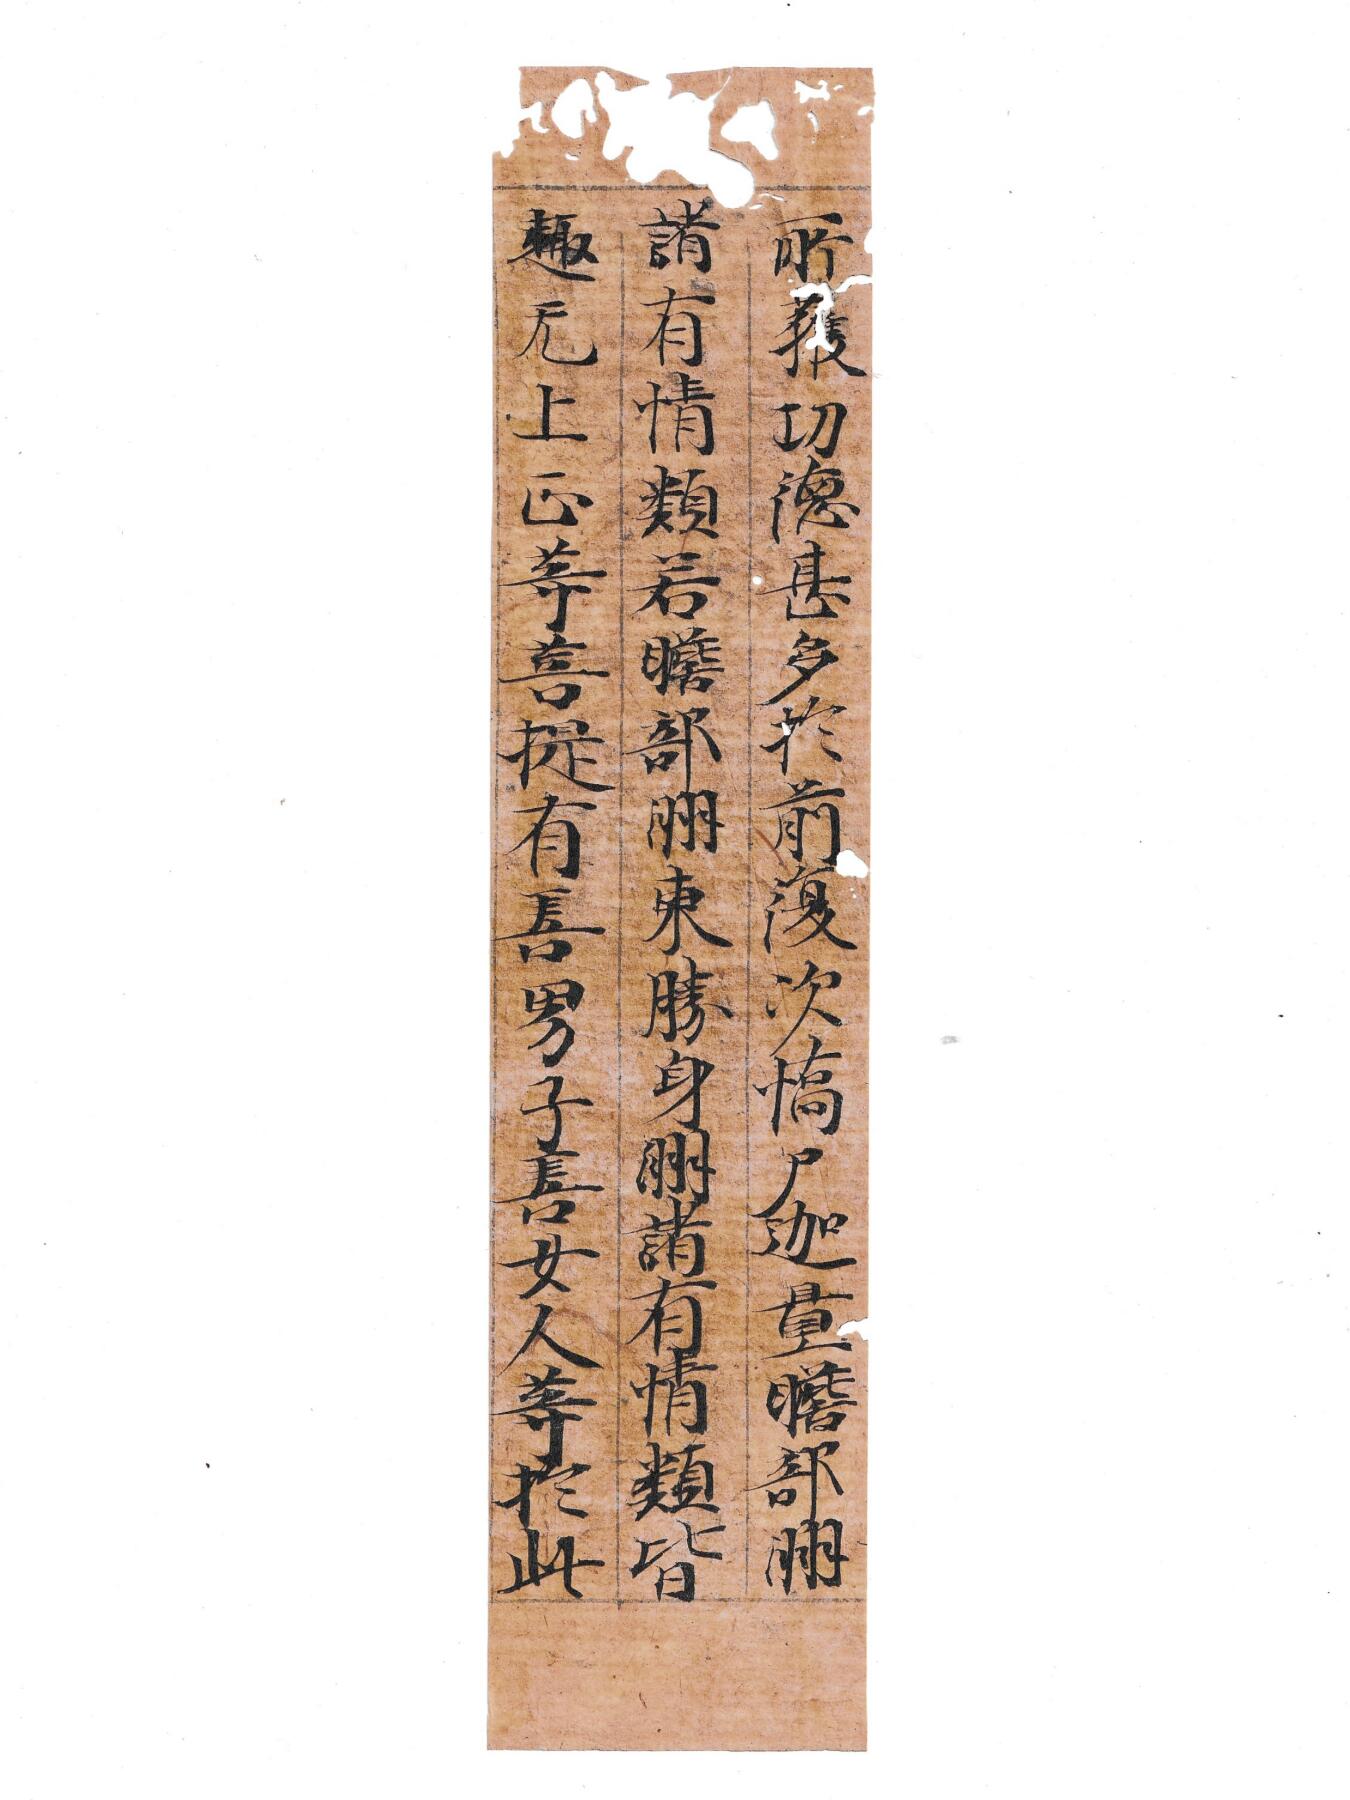 所獲功德甚多於前復次憍尸迦置贍部洲
諸有情類若贍部洲東勝身洲諸有情類皆
趣无上正等菩提有善男子善女人等於此